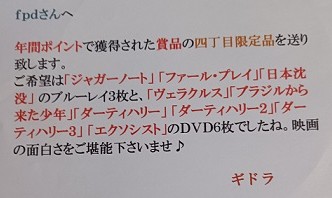 fpdさんへ
年間ポイントで獲得された賞品の四丁目限定品を送り
致します。
ご希望は「ジャガーノート」「ファール・プレイ」「日本沈
没」のブルーレイ3枚と、「ヴェラクルス」「ブラジルから
来た少年」「ダーティハリー」「ダーティハリー2」「ダー
ティハリー3」「エクソシスト」のDVD6枚でしたね。映画
の面白さをご堪能下さいませ♪
ギドラ